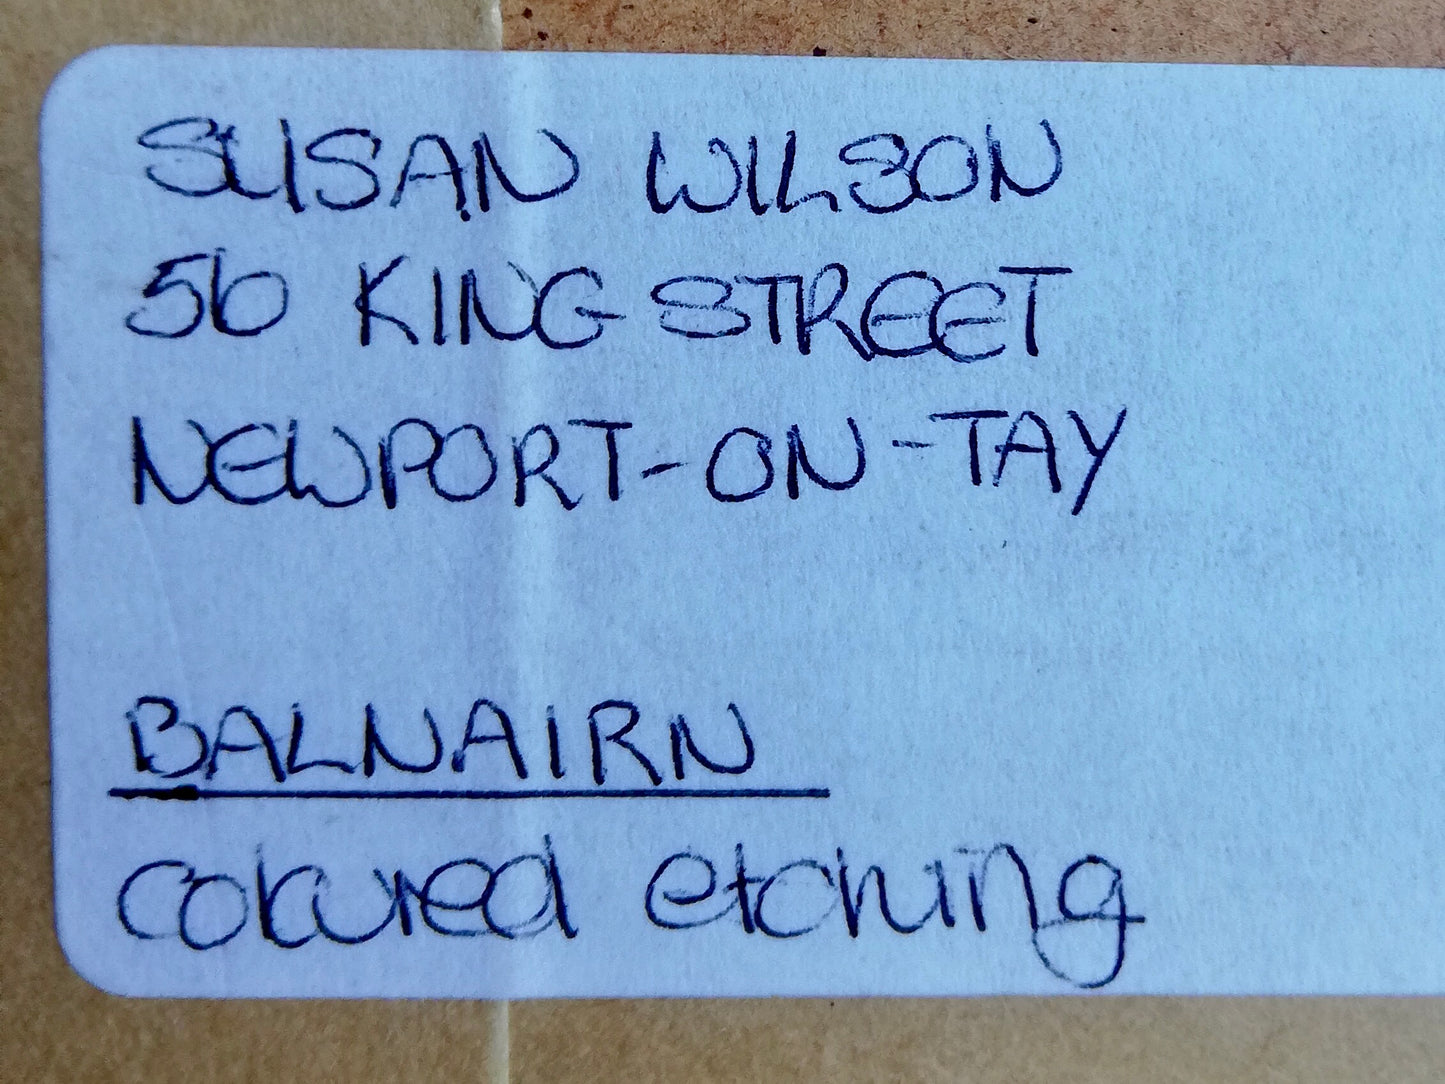 SUSAN WILSON
56 KING STREET
NEWPORT-ON-TAY
BALNAIRN
coloured etching